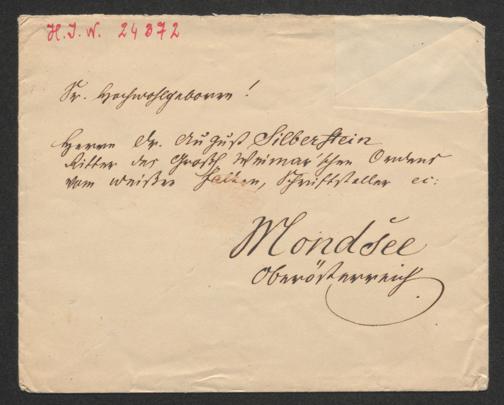 H. I. N. 24372
Sr. Hochwohlgeboren!
Herrn Dr. August Silberstein
Ritter des Großh Weimar'schen Ordens
vom weißen Falken, Schriftsteller ec:
Mondsee
Oberösterreich